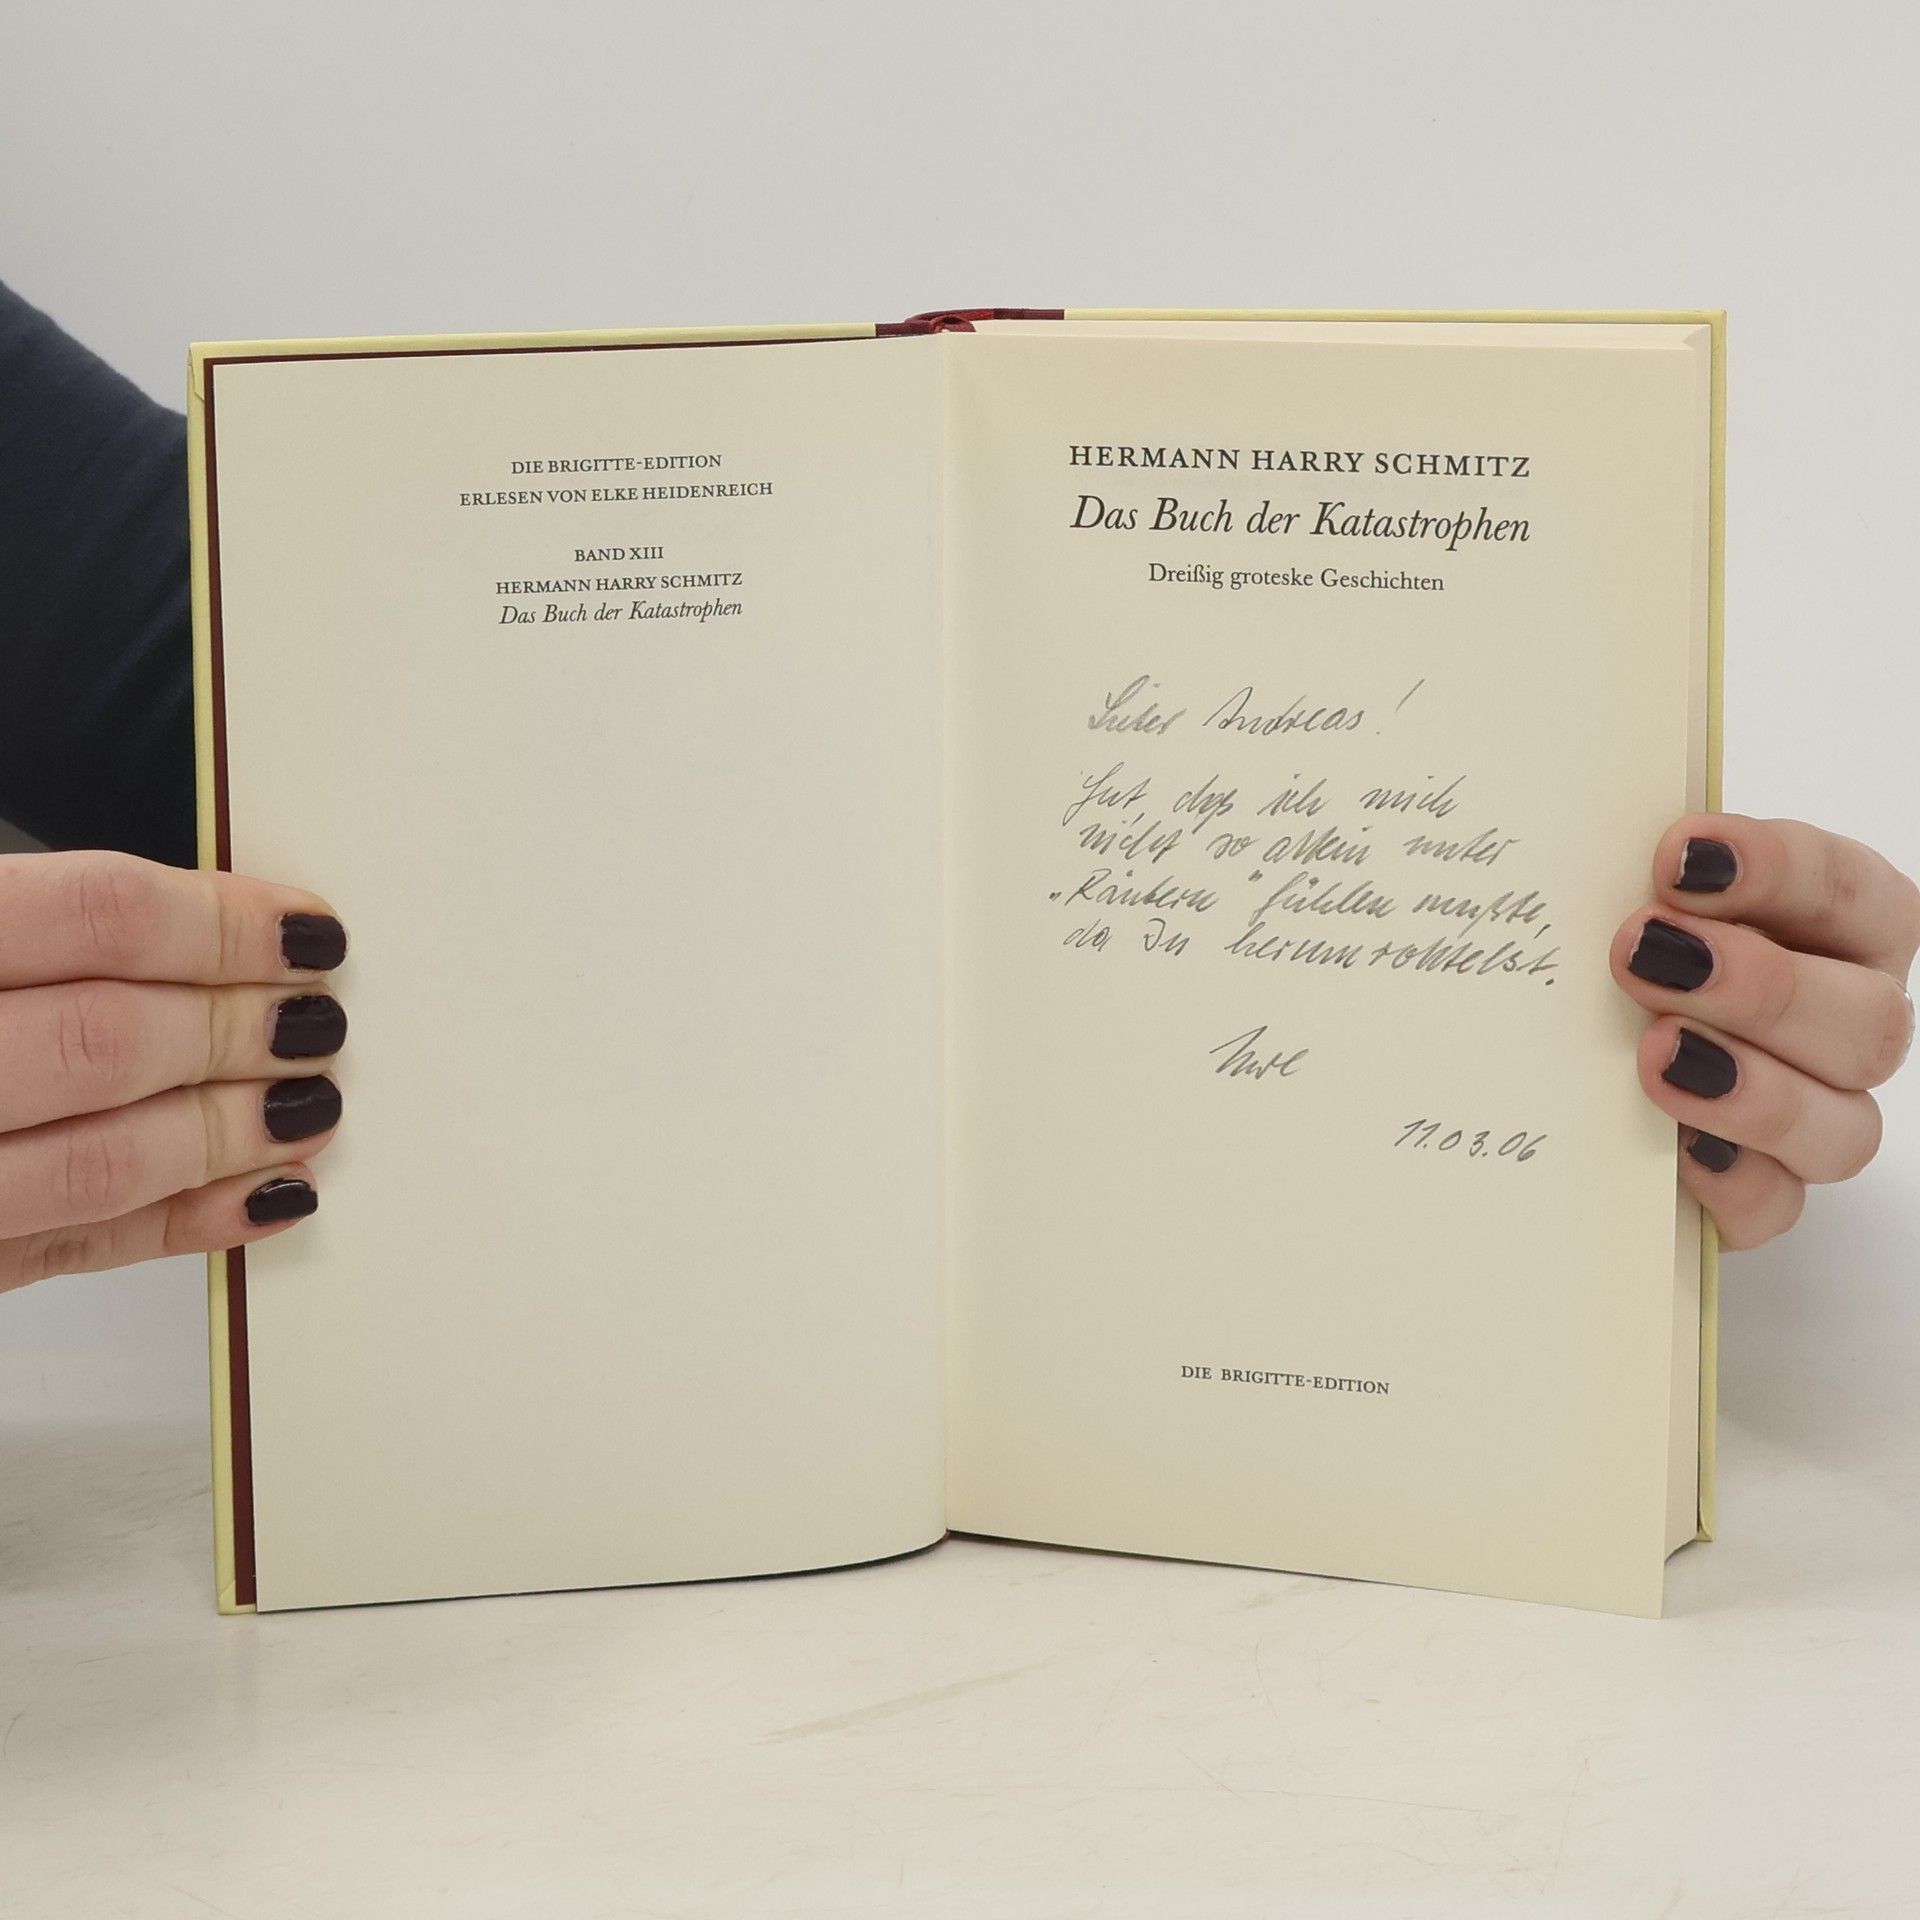 DIE BRIGITTE-EDITION
ERLESEN VON ELKE HEIDENREICH
BAND XIII
HERMANN HARRY SCHMITZ
Das Buch der Katastrophen
HERMANN HARRY SCHMITZ
Das Buch der Katastrophen
Dreißig groteske Geschichten
Lieber Andreas!
Gut, daß ich mich
nicht so allein unter
„Räubern" fühlen mußte,
da Du
11.03.06
DIE BRIGITTE-EDITION